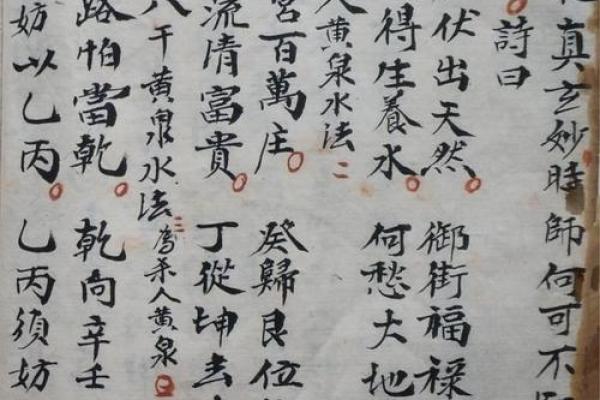 真玄妙時師何可不
詩曰
伏出天然 御街福祿
得生養水 何愁大地
黄泉水法 二
宮百萬庄 癸歸艮位
流清富貴 丁從坤去
八干黄泉水法 三 為杀人黄泉
路怕當乾 乾向辛壬
妨以乙丙 乙丙須妨